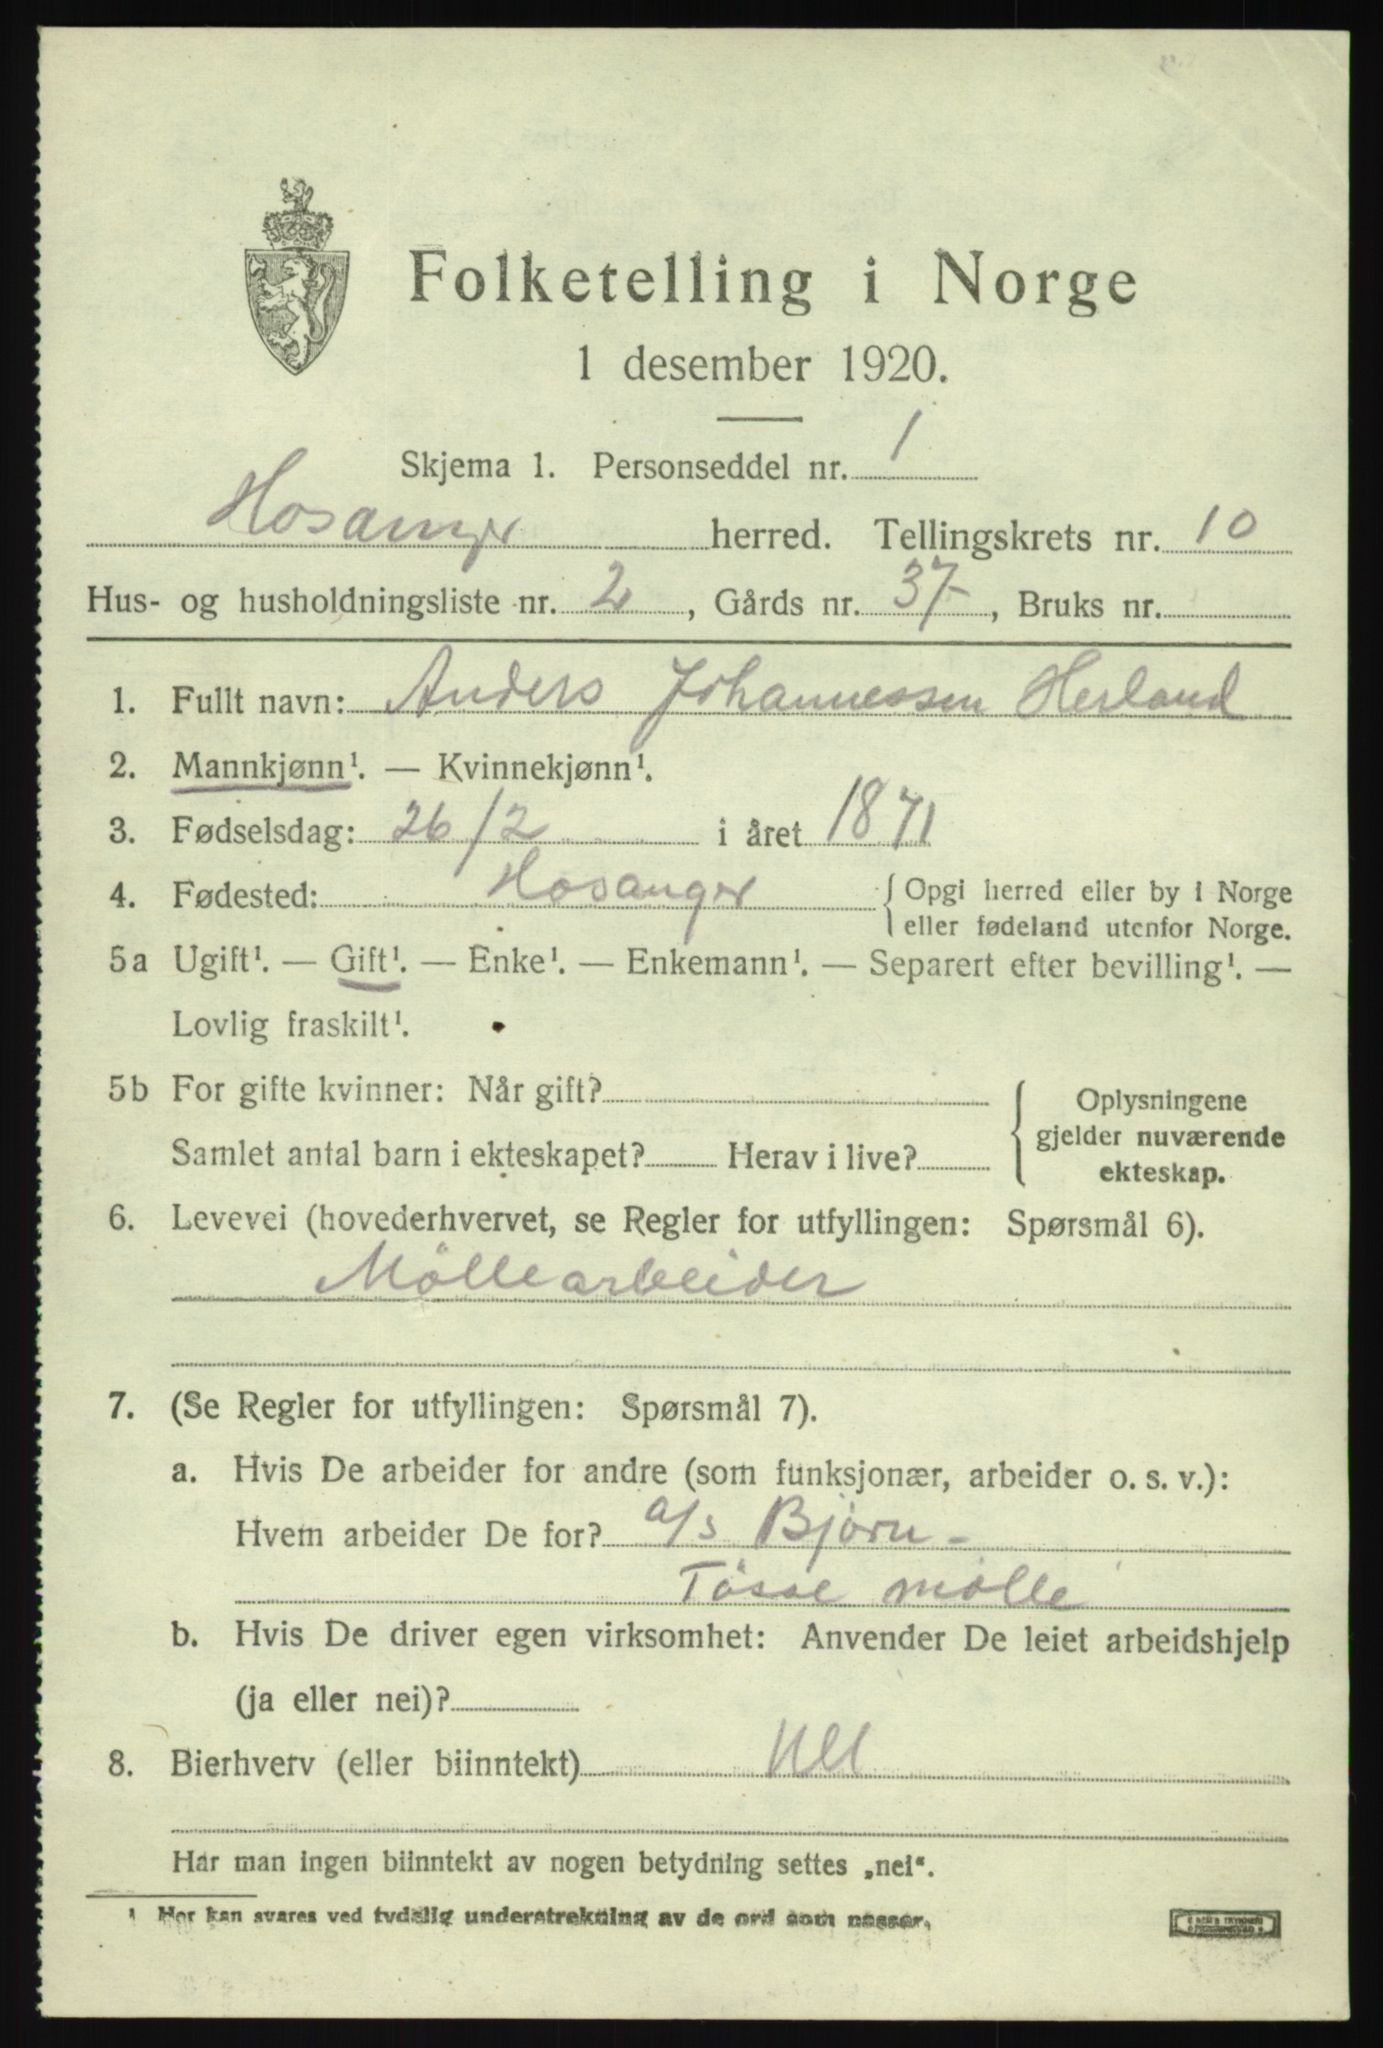 Folketelling i Norge
1 desember 1920.
Skjema 1. Personseddel nr. 1
Hosanger herred. Tellingskrets nr. 10
Hus- og husholdningsliste nr. 2, Gårds nr. 37, Bruks nr.
1. Fullt navn: Anders Johannessen Herland
2. Mannkjønn¹. — Kvinnekjønn¹.
3. Fødselsdag: 26/2 i året 1871
4. Fødested: Hosanger { Opgi herred eller by i Norge
eller fødeland utenfor Norge.
5a Ugift¹. — Gift¹. — Enke¹. — Enkemann¹. — Separert efter bevilling¹. —
Lovlig fraskilt¹.
5b For gifte kvinner: Når gift?
Samlet antal barn i ekteskapet? Herav i live?
Oplysningene
gjelder nuværende
ekteskap.
6. Levevei (hovederhvervet, se Regler for utfyllingen: Spørsmål 6).
Möllearbeider
7. (Se Regler for utfyllingen: Spørsmål 7).
a. Hvis De arbeider for andre (som funksjonær, arbeider o. s. v.):
Hvem arbeider De for? a/s Bjørn -
Tøsse mølle
b. Hvis De driver egen virksomhet: Anvender De leiet arbeidshjelp
(ja eller nei)?
8. Bierhverv (eller biinntekt) nei
Har man ingen biinntekt av nogen betydning settes „nei“.
¹ Her kan svares ved tydelig understrekning av de ord som passer.